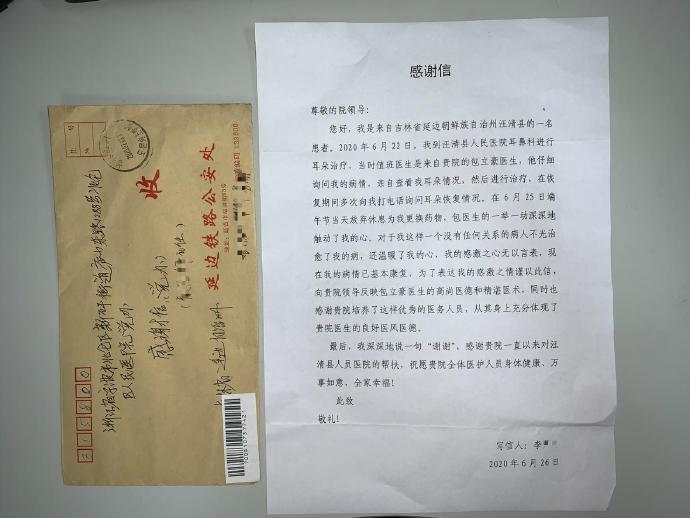 感谢信
尊敬的院领导：
您好，我是来自吉林省延边朝鲜族自治州汪清县的一名
患者。2020年6月22日，我到汪清县人民医院耳鼻科进行
耳朵治疗，当时值班医生是来自贵院的包立豪医生，他仔细
询问我的病情，亲自查看我耳朵情况，然后进行治疗，在恢
复期间多次向我打电话询问耳朵恢复情况。在6月25日端
午节当天放弃休息为我更换药物，包医生的一举一动深深地
触动了我的心。对于我这样一个没有任何关系的病人不光治
愈了我的病，还温暖了我的心，我的感激之心无以言表，现
在我的病情已基本康复，为了表达我的感激之情谨以此信，
向贵院领导反映包立豪的高尚医德和精湛医术，同时也
感谢贵院培养了这样优秀的医务人员，从其身上充分体现了
贵院医生的良好医风医德。
最后，我深深地说一句“谢谢”，感谢贵院一直以来对汪
清县人员医院的帮扶，祝愿贵院全体医护人员身体健康、万
事如意，全家幸福！
此致
敬礼！
写信人：李
2020年6月26日
收
延边铁路公安处
邮政编码 133000
感谢信
区人民医院党办
315800